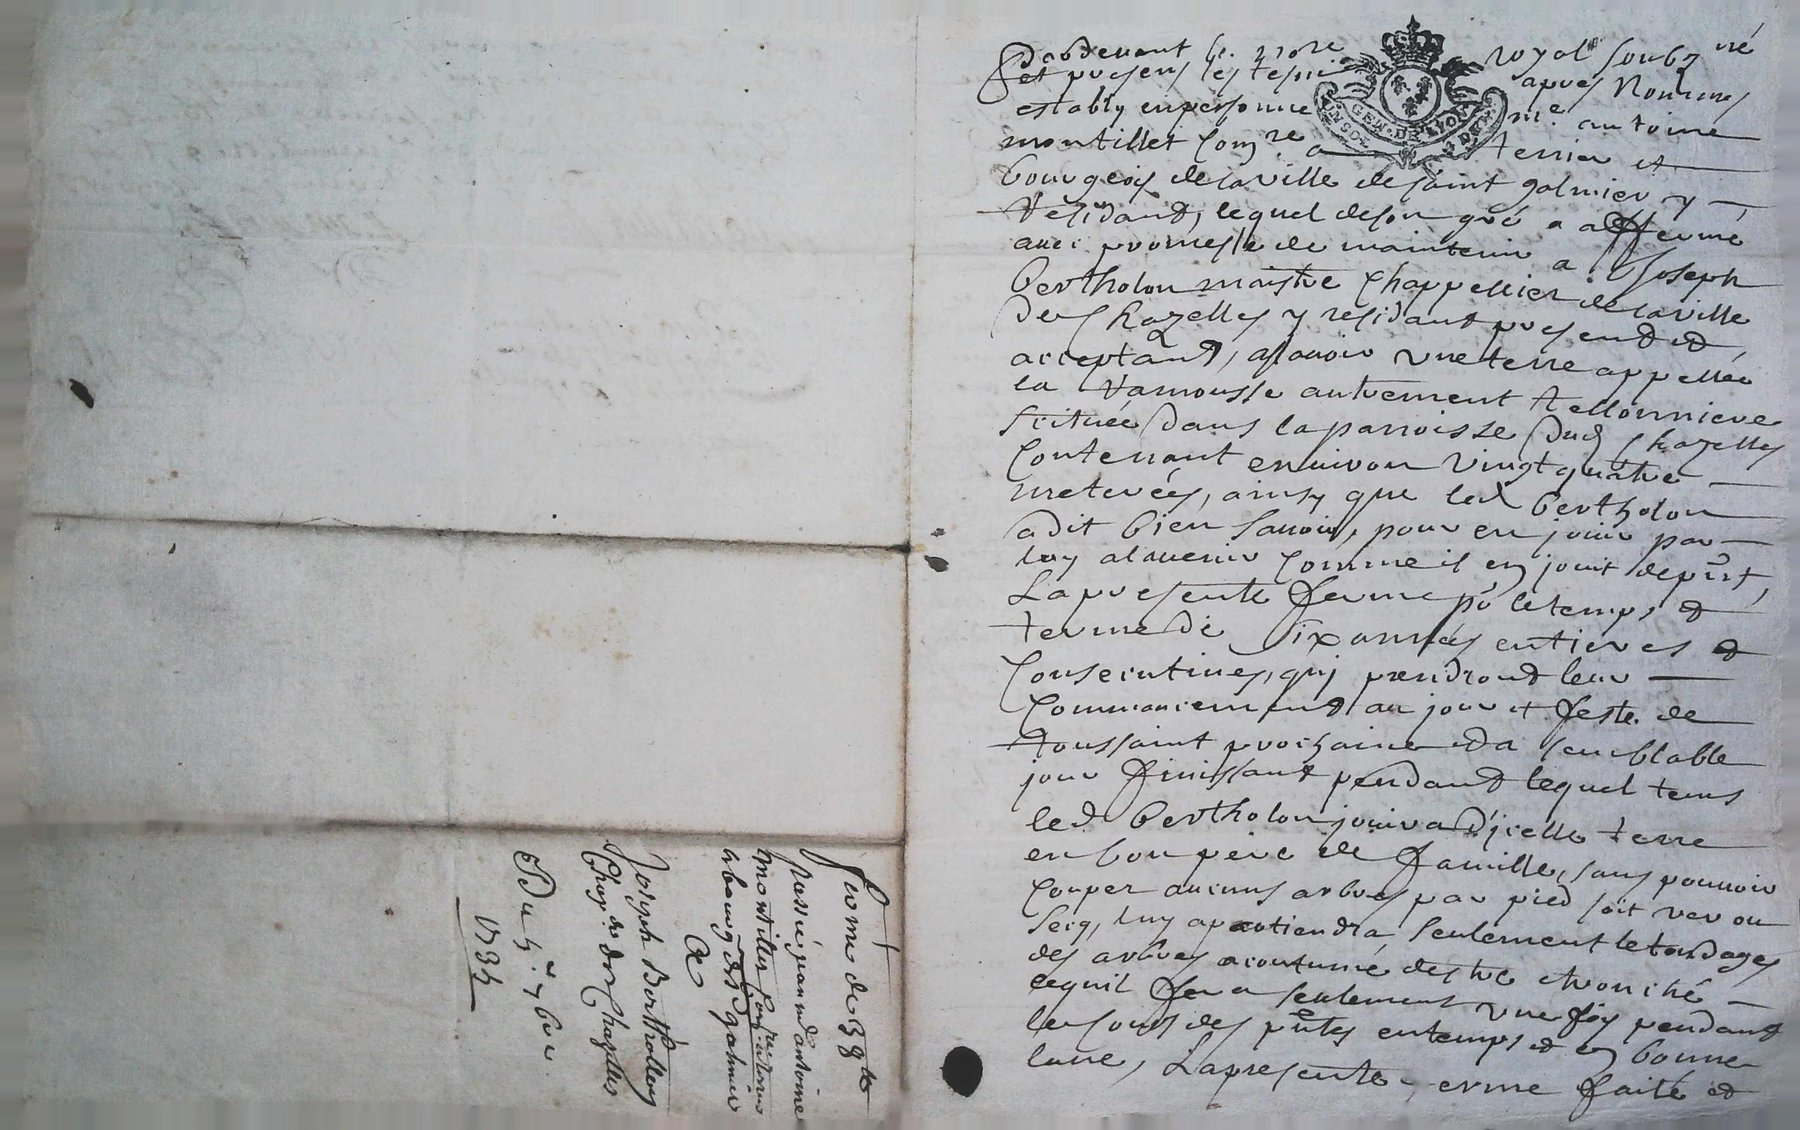 Pardevant le nore royal soubzné
et presens les tesm apres nommes
estably en personne me antoine
montillet comre a terrier et
bourgeois de la ville de saint galmier y
residant, lequel de son gré a affermé
avec promesse de maintenir a Joseph
bertholon maistre chappellier de la ville
de Chazelles y residant present et
acceptant, asavoir une terre appellée
la Varnousse autrement
scituée dans la parroisse dud Chazelles
contenant environ vingt quatre
meterées, ainsy que led bertholon
a dit bien savoir, pour en jouir par
luy alavenir comme il en jouit deput,
La presente ferme po le temps et
terme de six années entieres et
consecutives, qui prendront leur
commancement au jour et feste de
toussaint prochaine et a semblable
jour finissant pendant lequel tems
led bertholon jouira d'jcelle terre
en bon pere de famille, sans pouvoir
couper aucuns arbres par pied soit ver ou
secq, luy apartiendra seulement le tondages
des arbres acoutumé destre tronché
cequil fera seulement une fois pendant
le cours des pntes en temps et en bonne
lune, La presente ferme faite et
ferme de 39 ll
passée par md antoine
montillet comre a terrier
et bourg de St galmier
A
Joseph Bertholon
Chap. de Chazelles
Du 5. 7bre
1735
GEN. DE LYON